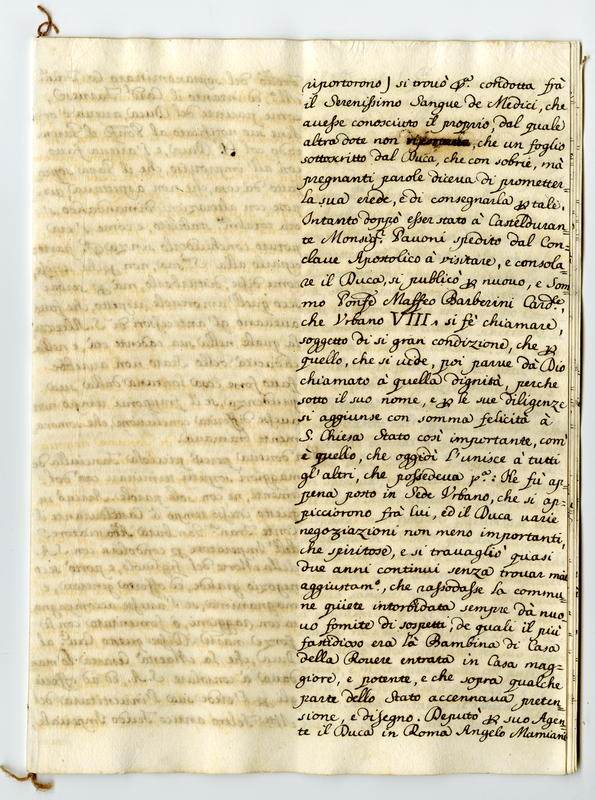 riportorono) si trovò pª. condotta frà
il Serenissimo Sangue de Medici, che
avesse conosciuto il proprio, dal quale
altra dote non , che un foglio
sottoscritto dal Duca, che con sobrie, mà
pregnanti parole diceva di prometter=
la sua erede, e di consegnarla ꝑ tale.
Intanto doppò esser stato à Castelduran=
te Monsigr. Pavoni spedito dal Con=
clave Apostolico à visitare, e consola=
re il Duca, si publicò ꝑ nuovo, e Som=
mo Ponfe Maffeo Barberini Card.le,
che Urbano VIII. si fè chiamare,
soggetto di si gran condizione, che ꝑ
quello, che si vede, poi parve dà Dio
chiamato à quella dignità, perche
sotto il suo nome, e ꝑ le sue diligenze
si aggiunse con somma felicità à
S. Chiesa Stato così importante, com'
è quello, che oggidì l'unisce à tutti
gl'altri, che possedeva pª.: Ne fù ap=
pena posto in Sede Urbano, che si ap=
picciorono frà lui, ed il Duca varie
negoziazioni non meno importanti,
che spiritose, e si travagliò quasi
due anni continui senza trovar mai
aggiustamº., che rassodasse la commu=
ne quiete intorbidata sempre dà nuo=
vo fomite di sospetti, de quali il più
fastidioso era là Bambina di Casa
della Rovere entrata in Casa mag=
giore, e potente, e che sopra qualche
parte dello Stato accennava preten=
sione, e disegno. Deputò ꝑ suo Agen=
te il Duca in Roma Angelo Mamiani